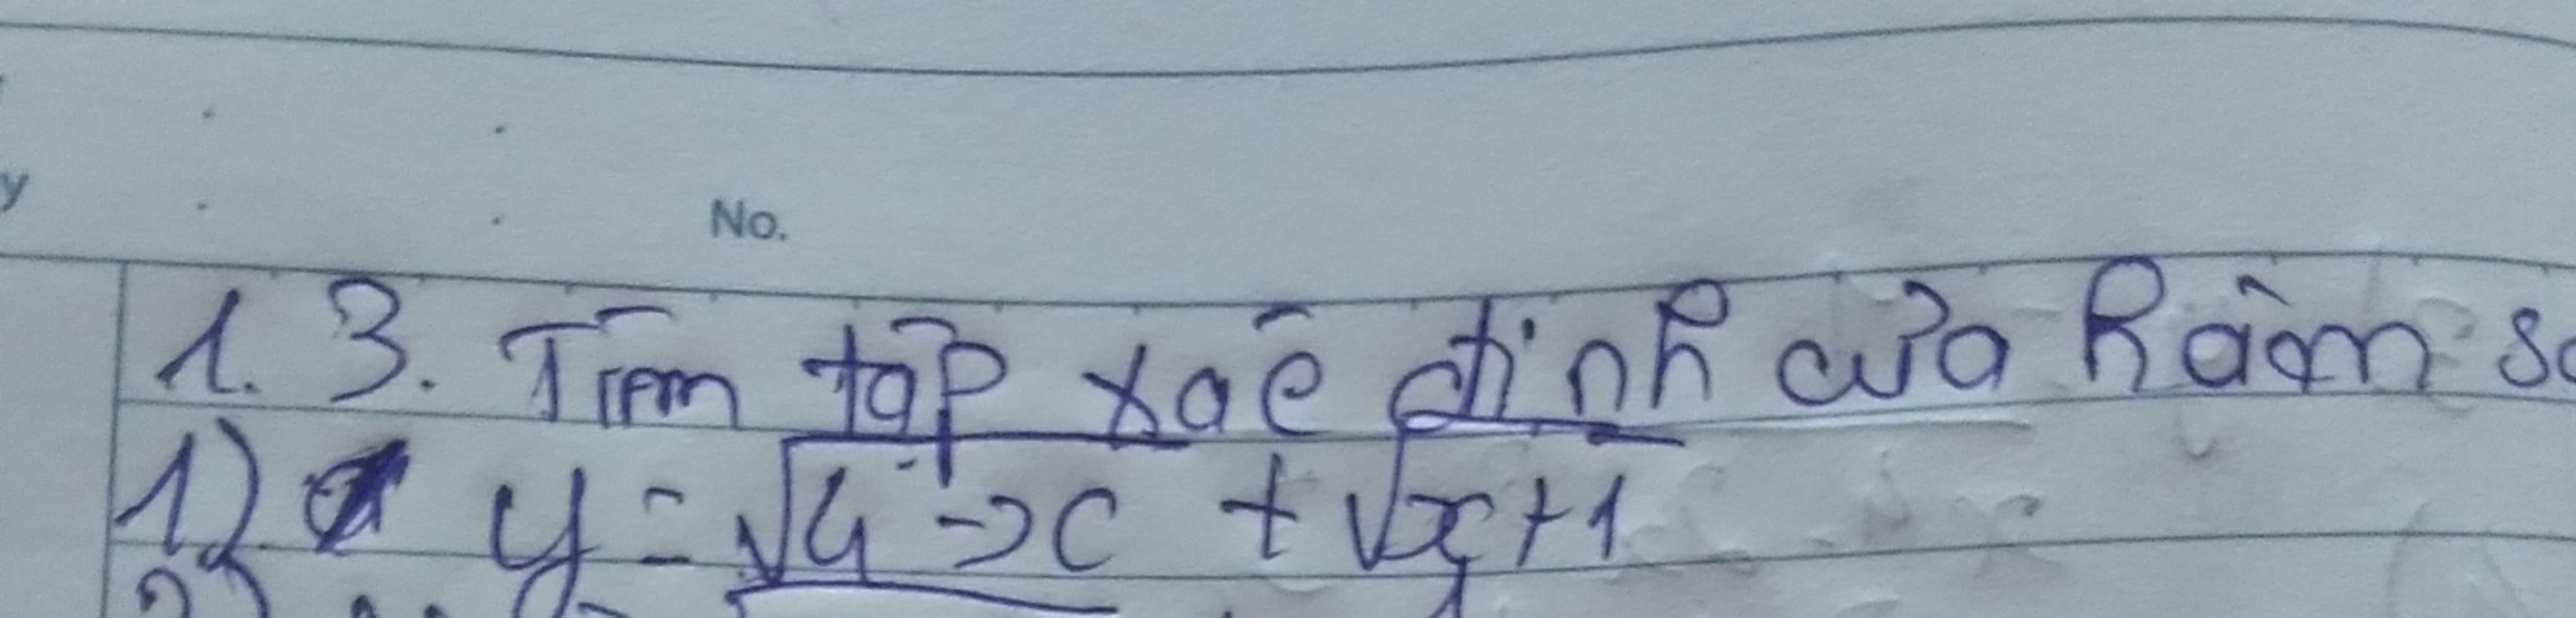 y
No.
1.3. Tìm tập xác định của hàm
1) y = √4-x + √x+1